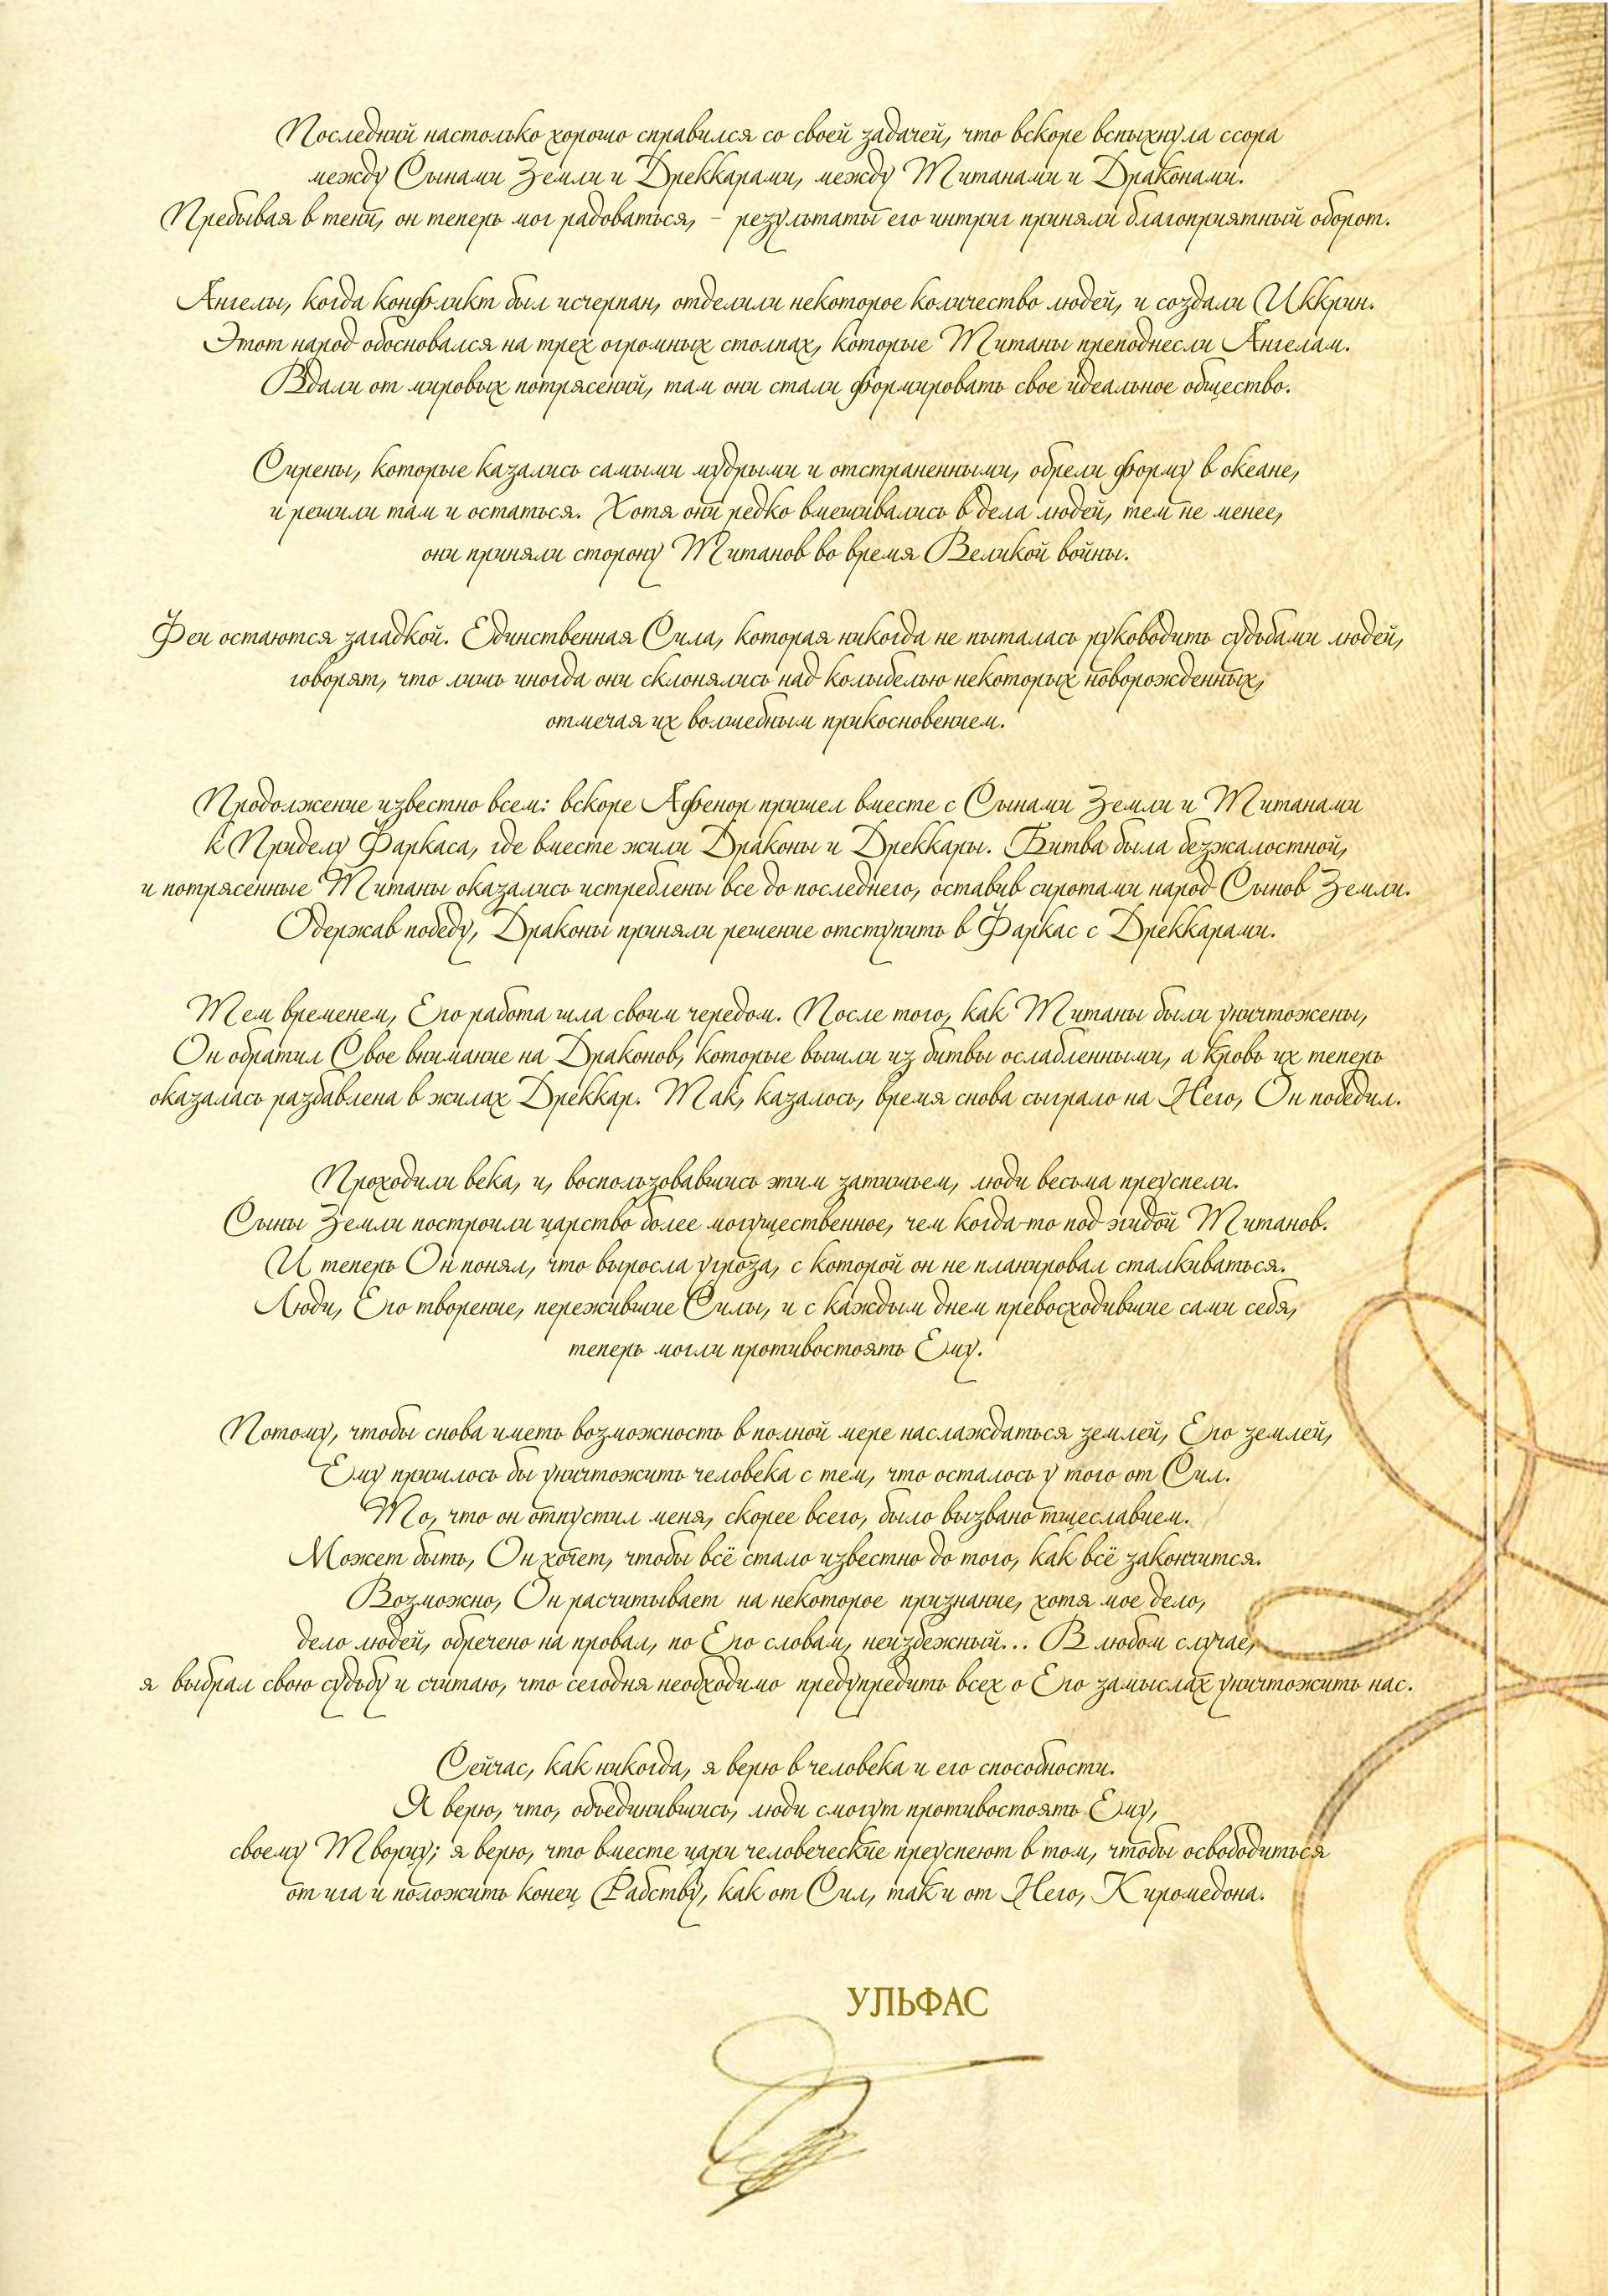 Последний настолько хорошо справился со своей задачей, что вскоре вспыхнула ссора
между Сынами Земли и Дреккарами, между Титанами и Драконами.
Пребывая в тени, он теперь мог радоваться, – результаты его интриг приняли благоприятный оборот.
Ангелы, когда конфликт был исчерпан, отделили некоторое количество людей, и создали Иккрин.
Этот народ обосновался на трех огромных столпах, которые Титаны преподнесли Ангелам.
Вдали от мировых потрясений, там они стали формировать свое идеальное общество.
Сирены, которые казались самыми мудрыми и отстраненными, обрели форму в океане,
и решили там и остаться. Хотя они редко вмешивались в дела людей, тем не менее,
они приняли сторону Титанов во время Великой войны.
Феи остаются загадкой. Единственная Сила, которая никогда не пыталась руководить судьбами людей,
говорят, что лишь иногда они склонялись над колыбелью некоторых новорожденных,
отмечая их волшебным прикосновением.
Продолжение известно всем: вскоре Афенор пришел вместе с Сынами Земли и Титанами
к Приделу Фаркаса, где вместе жили Драконы и Дреккары. Битва была безжалостной,
и потрясенные Титаны оказались истреблены все до последнего, оставив сиротами народ Сынов Земли.
Одержав победу, Драконы приняли решение отступить в Фаркас с Дреккарами.
Тем временем, Его работа шла своим чередом. После того, как Титаны были уничтожены,
Он обратил Свое внимание на Драконов, которые вышли из битвы ослабленными, а кровь их теперь
оказалась разбавлена в жилах Дреккар. Так, казалось, время снова сыграло на Него, Он победил.
Проходили века, и, воспользовавшись этим затишьем, люди весьма преуспели.
Сыны Земли построили царство более могущественное, чем когда-то под эгидой Титанов.
И теперь Он понял, что выросла угроза, с которой он не планировал сталкиваться.
Люди, Его творение, пережившие Силы, и с каждым днем превосходившие сами себя,
теперь могли противостоять Ему.
Потому, чтобы снова иметь возможность в полной мере наслаждаться землей, Его землей,
Ему пришлось бы уничтожить человека с тем, что осталось у того от Сил.
То, что он отпустил меня, скорее всего, было вызвано тщеславием.
Может быть, Он хочет, чтобы всё стало известно до того, как всё закончится.
Возможно, Он расчитывает на некоторое признание, хотя мое дело,
дело людей, обречено на провал, по Его словам, неизбежный... В любом случае,
я выбрал свою судьбу и считаю, что сегодня необходимо предупредить всех о Его замыслах уничтожить нас.
Сейчас, как никогда, я верю в человека и его способности.
Я верю, что, объединившись, люди смогут противостоять Ему,
своему Творцу; я верю, что вместе цари человеческие преуспеют в том, чтобы освободиться
от ига и положить конец Рабству, как от Сил, так и от Него, Киромедона.
УЛЬФАС